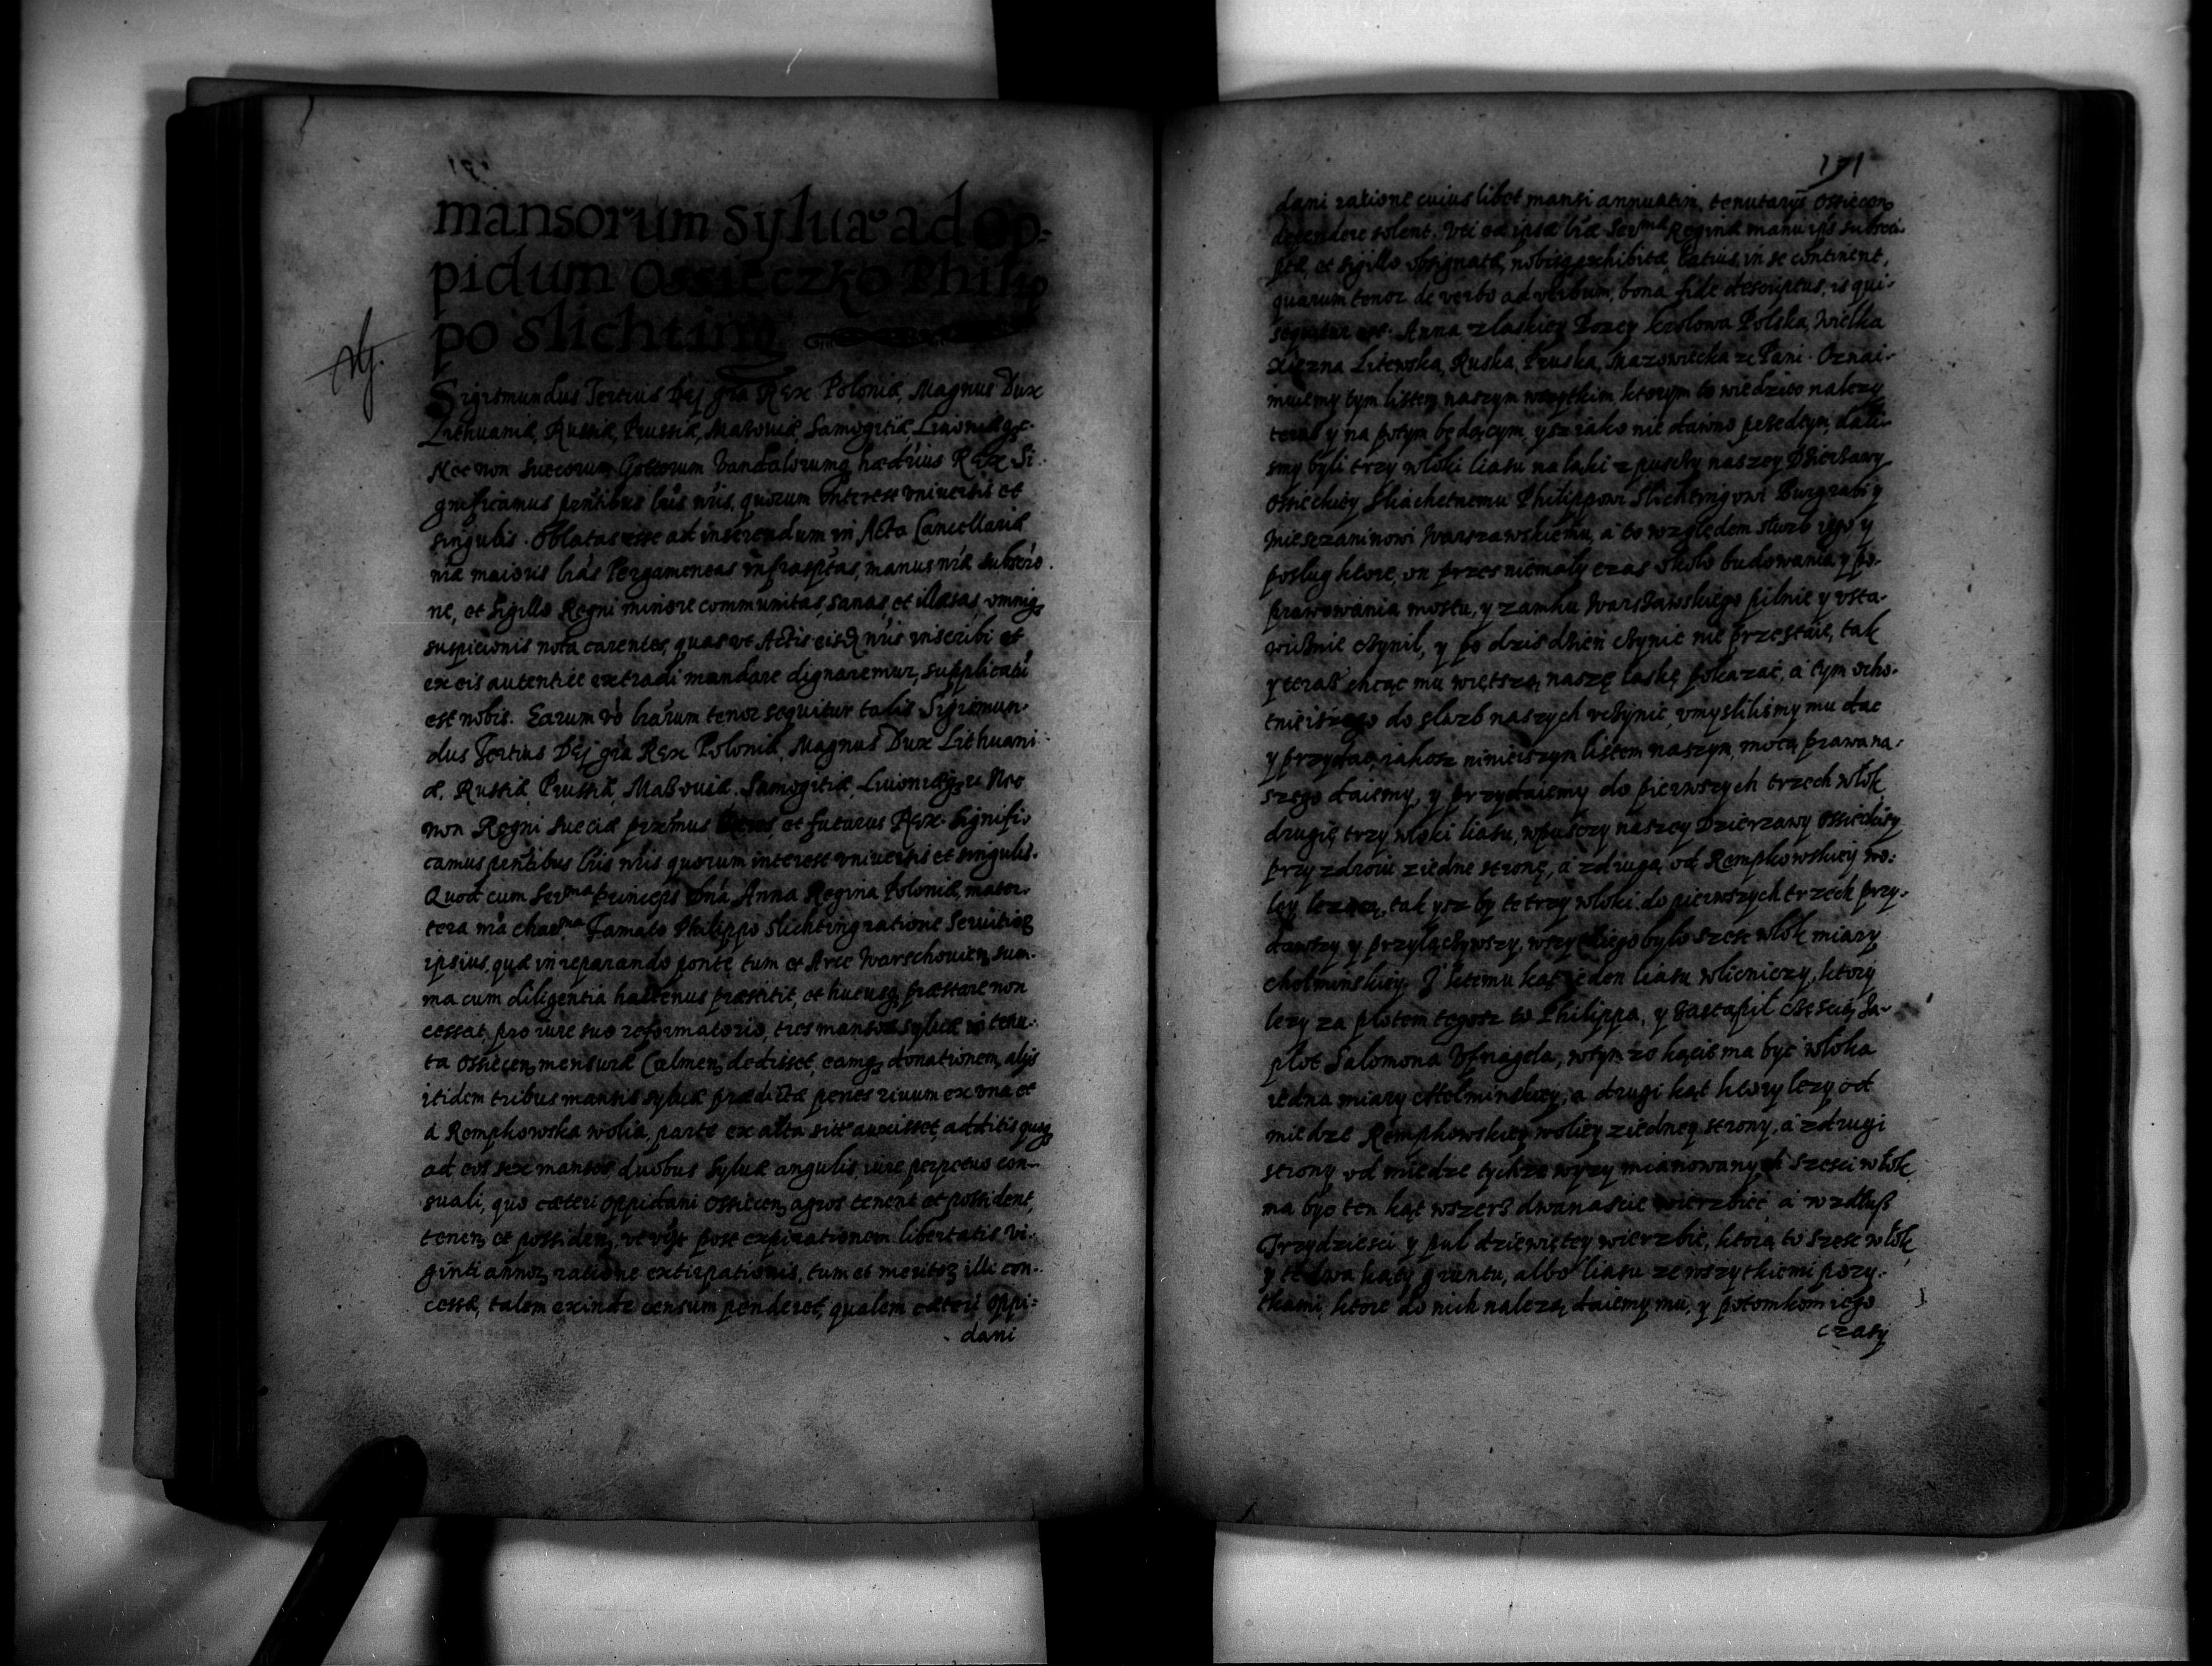 mansorum syluæ ad op-
pidum Ossieczko Philip
po slichting
Sigismundus Tertius Dej gra Rex Poloniæ, Magnus Dux
Lithuaniæ, Russiæ, Prussiæ, Masouiæ, Samogitiæ, Liuoniæq3 c.
Nec non Suecorum Gottorum Vandalorumq hædrius Rex Si-
gnificamus pñtibus lris nris, quorum interest vniuersis et
singulis. Oblatas esse ad inserendum in Acta Cancellariæ
nræ maioris lras Pergameneas infrascptas, manus nræ subscrio
ne, et sigillo Regni minore communitas, sanas, et illæsas omniq3
suspicionis nota carentes, quas vt Actis eisd nris inscribi et
ex eis autenticè extradi mandare dignaremur, supplicatũ
est nobis. Earum vo lrarum tenor sequitur talis Sigismun-
dus Tertius Dej gra Rex Poloniæ, Magnus Dux Lithuani-
æ, Russiæ, Prussiæ, Masouiæ, Samogitiæ, Liuoniæq3 c Nec
non Regni Sueciæ prximus et futurus Rex. Signifi-
camus pentibus lris nris quorum interest vniuersis et singulis.
Quod cum Serma Princeps Dna Anna Regina Poloniæ, mater-
tera nra charma Famato Philippo Slichting ratione Seruitior
ipsius, quæ in reparando ponte, tum et Arce Warschouien, sum-
ma cum diligentia hactenus præstitit, et hucusq præstare non
cessat, pro iure suo reformatorio, tres mansos syluæ in tenu-
ta Ossiecen, mensuræ Culmen, dedisset, eamq3 donationem, alijs
itidem tribus mansis syluæ prædictæ penes riuum ex vna et
à Rempkowska wolia, parte ex alta sitis auxisset, additis quoq3
ad eos sex mansos, duobus syluæ angulis, iure perpetuo con-
suali, quo cæteri oppidani Ossiecen, agros tenent et possident,
tenen, et possiden, vt vsq3 post expirationem libertatis vi-
ginti annor, ratione extirpationis, tum et meritor illi con-
cessæ, talem exinde censum penderet, qualem cæteri oppi-
dani
171
dani ratione cuius libet mansi annuatim, tenutarijs Ossiecen
dependere solent. Vti ea ipsæ lræ Sermæ Reginæ manu ipsˢ subscri-
ptæ, et sigillo obsignatæ, nobisq3 exhibitæ, latius in se continent,
quarum tenor de verbo ad verbum, bona fide descriptus, is qui-
sequitur est. Anna z laskiey Bozey krolowa Polska, Wielka
xiezna Litewska, Ruska, Pruska, Mazowiecka zc Pani. Oznai-
muiemy tym listem naszym wszytkim, ktorym to wiedziec nalezy
teras y na potym będącym, ysz iako nie dawno przedtym, dali-
smy byli trzy wloki liasu na laki z puszczy naszey Dzierżawy
Ossieckiey Sliachetnemu Philippowi Slichtingowi Burgrabi y
Miesczaninowi Warszawskiemu, a to względem sluzb iego y
poslug ktore, on przes niemaly czas okolo budowania y po-
prawowania mostu, y zamku Warszawskiego pilnie y vsta-
wicznie czynil, y po dzis dzień czynic nie przestaie, tak
y teras chcąc mu więtszą naszę laskę pokazać, a tym ocho-
tnieiszego do sluzb naszych vczynić, vmysliliśmy mu dac
y przydac, iakosz ninieiszym listem naszym, mocą prawa na-
szego daiemy, y przydaiemy do pierwszych trzech wlok
drugię trzy wloki liasu, w puszczy naszey Dzierzawy Ossieckiey
przy zdroiu z iedne stronę, a z drugą od Rempkowskiey wo-
ley lezącą, tak ysz by te trzy wloki do pierwszych trzech przy-
dawszy y przyłączywszy, wszytkiego bylo szesc wlok miary
cholminskiey. I k temu kąt ieden liasu w licniczy, ktory
lezy za plotem tegosz to Philippa, y zastąpil częscią za-
plot Salomona Vfnagela, w tym zo kącie ma być wloka
iedna miary chelminskiey, a drugi kąt ktory lezy od
miedze Rempkowskiey woliey z iedney strony, a z drugi
strony od miedze tychze wyzy mianowanych szesci wlok,
ma byc ten kąt wszerz dwanascie wierzbic a w zdłusz
Trzydziesci y pul dziewiętey wierzbic, ktorą to szesc wlok,
y te dwa kąty gruntu, albo liasu ze wszytkiemi pozy-
tkami, ktore do nich nalezą, daiemy mu, y potomkom iego
czasy